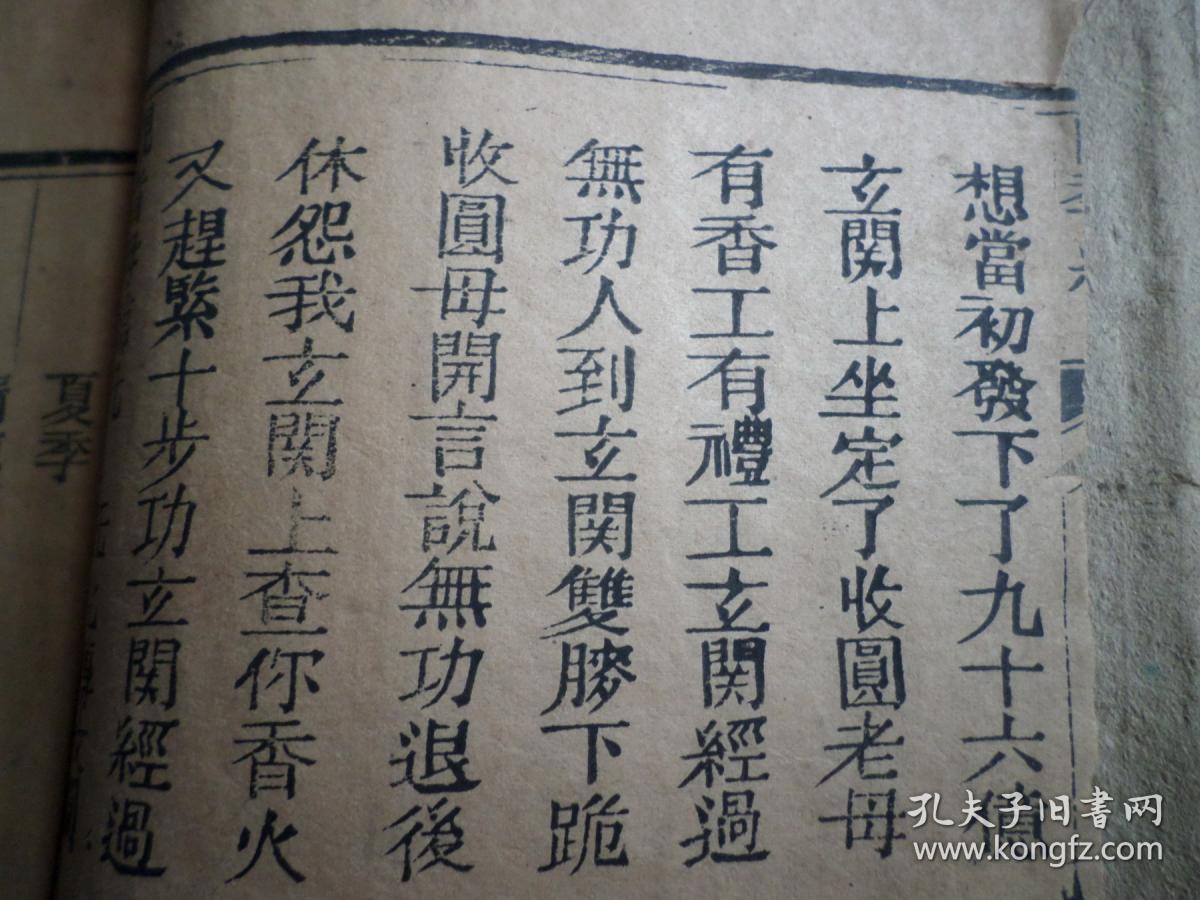 想當初發下了九十六億
玄関上坐定了收圓老母
有香工有禮工玄関經過
無功人到玄関雙膝下跪
收圓母開言說無功退後
休怨我玄関上查你香火
又趕緊十步功玄関經過
夏季
孔夫子旧书网
www.kongfz.com